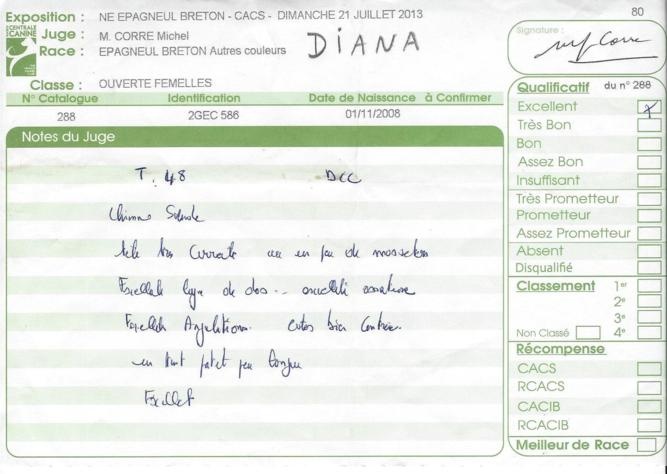 80
Exposition : NE EPAGNEUL BRETON - CACS - DIMANCHE 21 JUILLET 2013
CENTRALE CANINE
Juge : M. CORRE Michel
Race : EPAGNEUL BRETON Autres couleurs
DiANA
Classe : OUVERTE FEMELLES
N° Catalogue Identification Date de Naissance à Confirmer
288 2GEC 586 01/11/2008
Notes du Juge
T. 48 DCC
tête bien un peu de
Excellente ligne de dos..
Excellentes Angulations. cotes bien
un peu
Excellent
Signature :
Corre
Qualificatif du n° 288
Excellent x
Très Bon
Bon
Assez Bon
Insuffisant
Très Prometteur
Prometteur
Assez Prometteur
Absent
Disqualifié
Classement 1er
2e
3e
Non Classé 4e
Récompense
CACS
RCACS
CACIB
RCACIB
Meilleur de Race